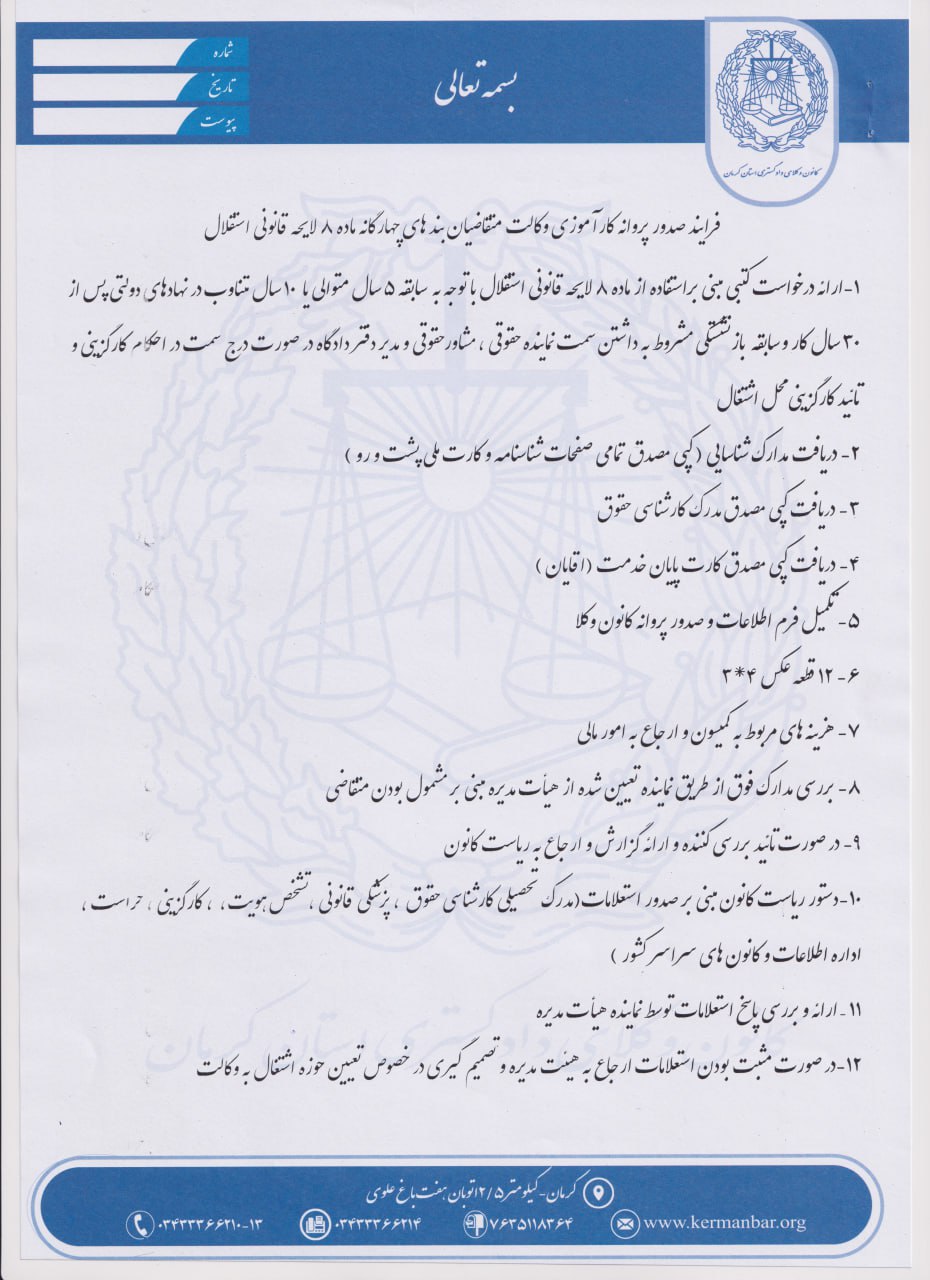 شماره
تاریخ
پیوست
بسمه تعالی
کانون وکلای دادگستری استان کرمان
فرایند صدور پروانه کارآموزی وکالت متقاضیان بند های چهارگانه ماده ۸ لایحه قانونی استقلال
۱-ارائه درخواست کتبی مبنی براستفاده از ماده ۸ لایحه قانونی استقلال با توجه به سابقه ۵ سال متوالی یا ۱۰ سال متناوب در نهادهای دولتی پس از
۳۰ سال کار و سابقه بازنشستگی مشروط به داشتن سمت نماینده حقوقی ، مشاور حقوقی و مدیر دفتر دادگاه در صورت درج سمت در احکام کارگزینی و
تائید کارگزینی محل اشتغال
۲- دریافت مدارک شناسایی (کپی مصدق تمامی صفحات شناسنامه و کارت ملی پشت و رو )
۳- دریافت کپی مصدق مدرک کارشناسی حقوق
۴- دریافت کپی مصدق کارت پایان خدمت (اقایان )
۵- تکمیل فرم اطلاعات و صدور پروانه کانون وکلا
۶- ۱۲ قطعه عکس ۴*۳
۷- هزینه های مربوط به کمیسون و ارجاع به امور مالی
۸- بررسی مدارک فوق از طریق نماینده تعیین شده از هیأت مدیره مبنی بر مشمول بودن متقاضی
۹- در صورت تائید بررسی کننده و ارائه گزارش و ارجاع به ریاست کانون
۱۰-دستور ریاست کانون مبنی بر صدور استعلامات(مدرک تحصیلی کارشناسی حقوق ، پزشکی قانونی ، تشخص هویت، ، کارگزینی ، حراست ،
اداره اطلاعات و کانون های سراسر کشور )
۱۱- ارائه و بررسی پاسخ استعلامات توسط نماینده هیأت مدیره
۱۲-در صورت مثبت بودن استعلامات ارجاع به هیئت مدیره و تصمیم گیری در خصوص تعیین حوزه اشتغال به وکالت
کانون وکلای دادگستری استان کرمان
کرمان-کیلومتر ۱۲/۵ اتوبان هفت باغ علوی
www.kermanbar.org
۷۶۳۵۱۱۸۳۶۴
۰۳۴۳۳۳۶۶۲۱۴
۰۳۴۳۳۳۶۶۲۱۰-۱۳